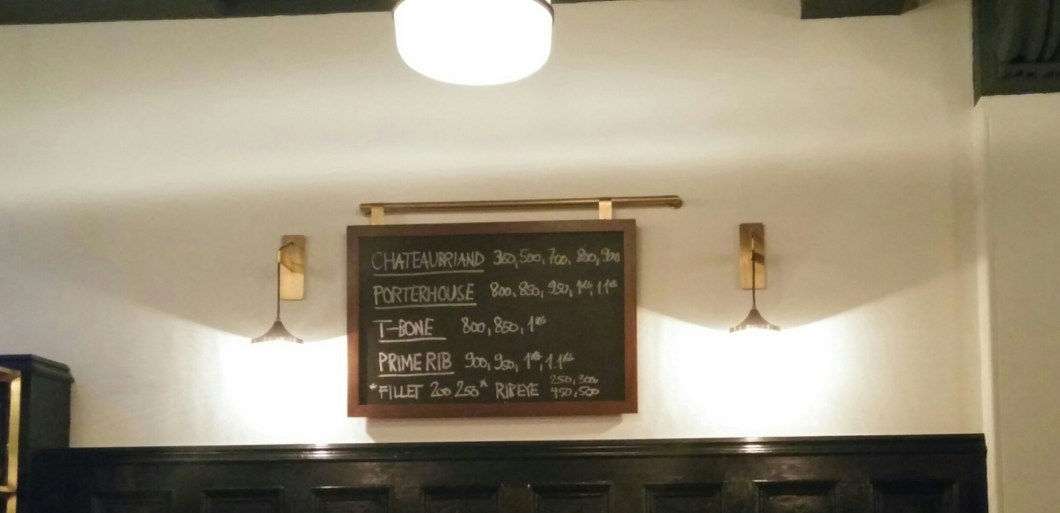 CHATEAUBRIAND 350, 500, 700, 800, 900
PORTERHOUSE 800, 850, 950, 1KG, 1.1KG
T-BONE 800, 850, 1KG
PRIME RIB 900, 950, 1KG, 1.1KG
*FILLET 200, 250* RIBEYE 250, 300, 450, 500